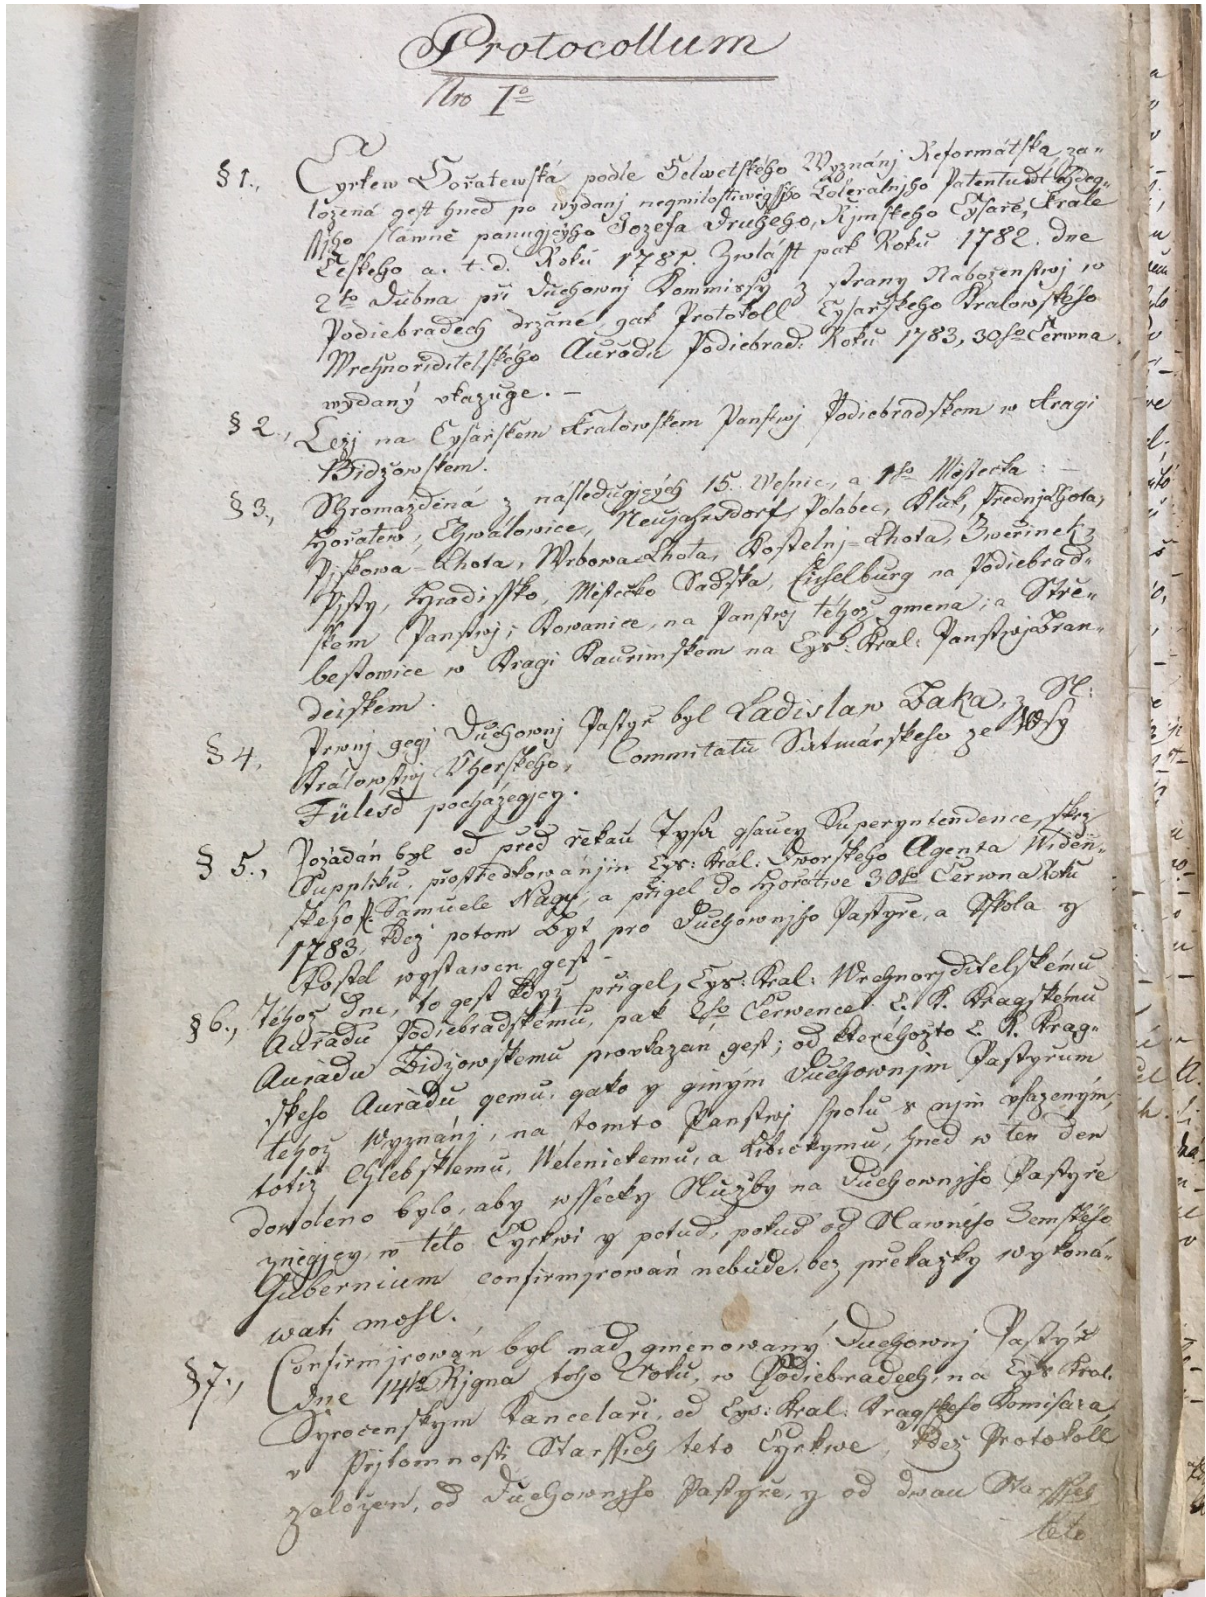 Protocollum
Nro I<sup>o</sup>
§ 1., Cyrkew Hořatewská podle Helwetského Wyznánj Reformátska za-
ložená gest hned po wydanj neymilostiwěgssjho Tolerantnjho Patentu od
slawně panugjcyho Jozefa Druheho, Řjmskeho Cysaře, Krále
Českeho a. t. d. Roku 1781. Zwlásst pak Roku 1782. dne
2ho Dubna při Duchownj Kommissy z strany Náboženstwj w
Podiebradech držane, gak Protokoll Cysařskeho Kralowskeho
Wrchnořiditelského Auřadu Podiebrad: Roku 1783, 30ho Čerwna
wydaný vkazuge. –
§ 2., Ležj na Cysařskem Kralowskem Panstwj Podiebradskem w Kragi
Bidžowskem.
§ 3., Shromážděná z následugjcých 15. Wesnic, a 1ho Městečka: –
Hořatew, Chwalowice, Neujahrsdorf, Polabec, Kluk, Přednj Lhota,
Pjskowa-Lhota, Wrbowa Lhota, Kostelnj-Lhota, Zwěřinek,
Pjsty, Hradissko, Městečko Sadska, Eichelburg na Podiebrad-
skem Panstwj; Kowanice, na Panstwj téhož gmena; a Stře-
bestowice w Kragi Kauřimskem na Cys: Kral: Panstwj Bran-
deiskem.
§ 4. Prwnj gegj Duchownj Pastyř byl Ladislaw Baka, z Sl:
Králowstwj Vherského, Commitatu Satmárskeho ze Wsy
Fülesd pocházegjcy.
§ 5., Požádán byl od před řekau Tysa gsaucy Superyntendence, skrz
Suppliku, prostředkowánjm Cys: Kral: Dworskeho Agenta Wideň-
skeho P. Samuele Nagy, a přigel do Hořatwe 30ho Čerwna Roku
1783, kdež potom Byt pro Duchownjho Pastyře, a Skola y
Kostel wystawen gest –
§ 6., Téhož Dne, to gest když přigel, Cys: Kral: Wrchnořjditelskému
Auřadu Podiebradskému, pak 2ho Čerwence C. K. Kragskému
Auřadu Bidžowskemu prokazan gest; od kteréhožto C. K. Krag-
skeho Auřadu gemu, gako y giným Duchownjm Pastyrum
téhož Wyznánj, na tomto Panstwj spolu s njm vsazeným,
totiž Chlebskemu, Welenickemu, a Libickymu, hned w ten den
dowoleno bylo, aby wssecky Služby na Duchownjho Pastyře
znegjcy, w této Cyrkwi y potud, pokud od Slawného Zemského
Gubernium confirmjrowán nebude, bez překažky wykoná-
wati mohl.
§ 7., Confirmjrowán byl nad gmenowaný Duchownj Pastýř
dne 14ho Řjgna toho Roku, w Podiebradech, na Cys Kral.
Syrocenskym Kancelaři, od Cys: Kral: Kragskeho Komisara,
v Přjtomnosti Starssich teto Cyrkwe, kdež Protokoll
založen, od Duchownjho Pastyře, y od dwau Starssjch
této